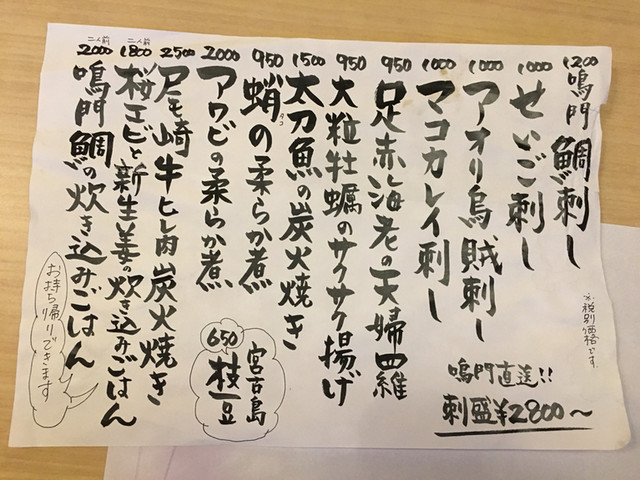 1200 鳴門鯛刺し
1000 せいご刺し
1000 アオリ烏賊刺し
1000 マコカレイ刺し
950 足赤海老の天婦羅
950 大粒牡蠣のサクサク揚げ
1500 太刀魚の炭火焼き
950 蛸の柔らか煮
タコ
2000 アワビの柔らか煮
2500 尾崎牛ヒレ肉炭火焼き
二人前
1800 桜エビと新生姜の炊き込みごはん
二人前
2000 鳴門鯛の炊き込みごはん
お持ち帰りできます
宮古島
枝豆
650
鳴門直送!!
刺盛¥2800〜
※税別価格です